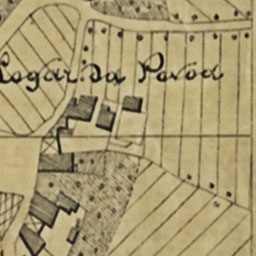 Rogar da Povoa